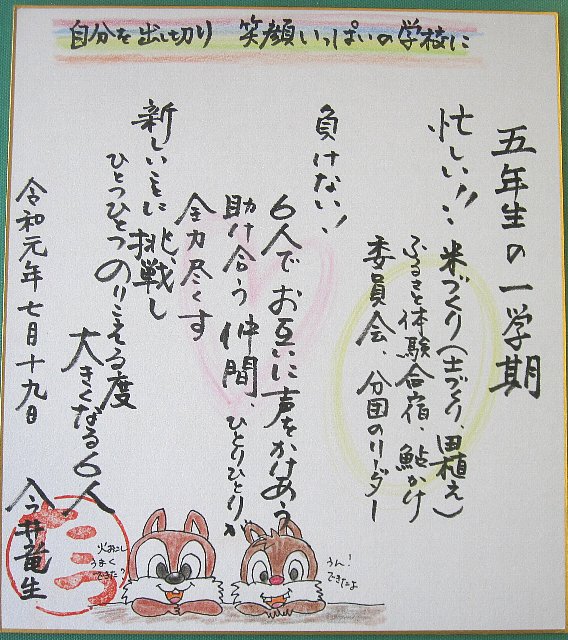 自分を出し切り 笑顔いっぱいの学校に
五年生の一学期
忙しい!!: 米づくり(土づくり、田植え)
ふるさと体験合宿、鮎かけ
委員会、分団のリーダー
負けない!
6人でお互いに声をかけあう
助け合う仲間、ひとりひとりが
全力尽くす
新しいことに挑戦し
ひとつひとつのりこえる度
大きくなる6人
令和元年七月十九日 今井竜生
火おこし
うまく
できた?
うん!
できたよ
たつ